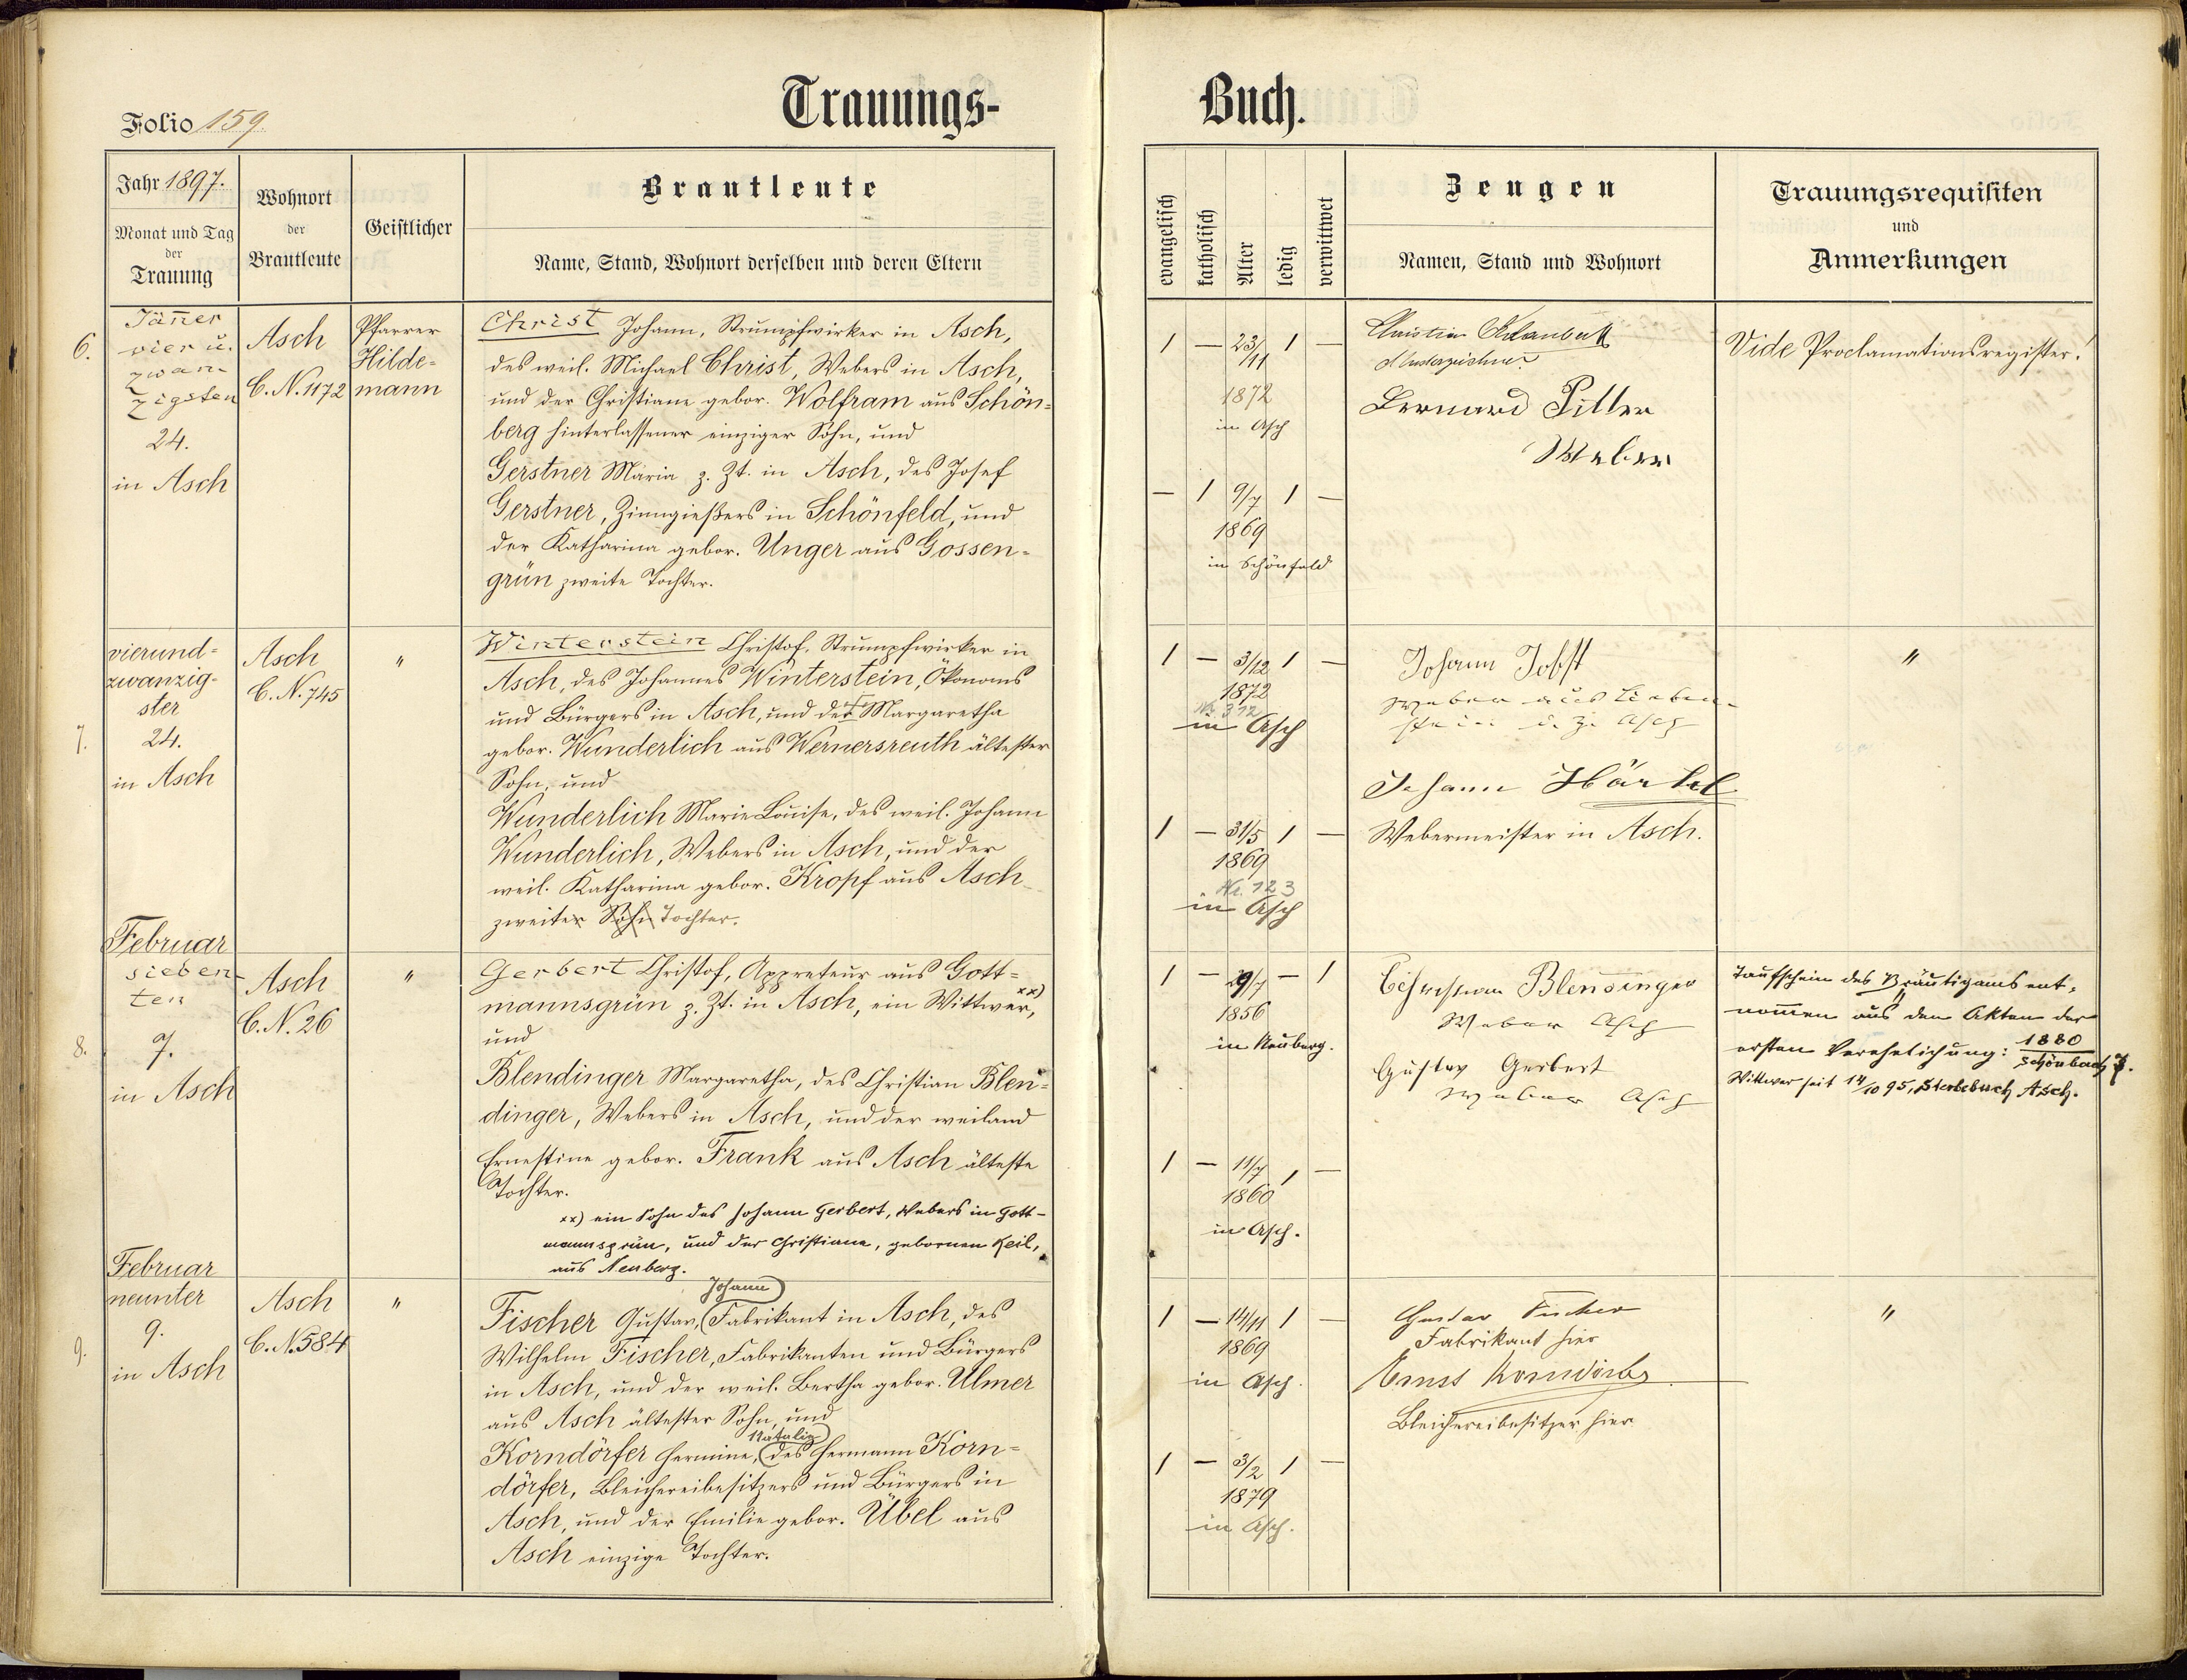 Trauungs-
Buch.
Folio 159.
Jahr 1897.
Monat und Tag
der
Trauung
Wohnort
der
Brautleute
Geistlicher
Brautleute
Name, Stand, Wohnort derselben und deren Eltern
evangelisch
katholisch
Alter
ledig
verwittwet
Zeugen
Namen, Stand und Wohnort
Trauungsrequisiten
und
Anmerkungen
6.
Jän̄er
vier u.
zwan-
zigsten
24.
in Asch
Asch
C. N. 1172
Pfarrer
Hilde-
mann
Christ Johann, Strumpfwirker in Asch,
des weil. Michael Christ, Webers in Asch,
und der Christiane gebor. Wolfram aus Schön-
berg hinterlassener einziger Sohn, und
Gerstner Maria z. Zt. in Asch, des Josef
Gerstner, Zinngießers in Schönfeld, und
der Katharina gebor. Unger aus Gossen-
grün zweite Tochter.
1 — 23/11 1 —
1872
in Asch
— 1 9/7 1 —
1869
in Schönfeld
Christian
Bernard Pitter
Weber
Vide Proclamationsregister.
7.
vierund-
zwanzig-
ster
24.
in Asch
Asch
C. N. 745
"
Winterstein Christof, Strumpfwirker in
Asch, des Johannes Winterstein, Ökonoms
und Bürgers in Asch, und der Margaretha
gebor. Wunderlich aus Wernersreuth ältester
Sohn, und
Wunderlich Marie Louise, des weil. Johann
Wunderlich, Webers in Asch, und der
weil. Katharina gebor. Kropf aus Asch
zweiter Sohn Tochter.
1 — 3/12 1 —
1872
Nr. 312
in Asch
1 — 31/5 1 —
1869
Nr. 123
in Asch
Johann Jobst
Weber aus Lieben-
stein d. Z. Asch
Johann Härtel
Webermeister in Asch.
"
8.
Februar
sieben-
ten
7.
in Asch
Asch
C. N. 26
"
Gerbert Christof, Appreteur aus Gott-
mannsgrün z. Zt. in Asch, ein Wittwer, xx)
und
Blendinger Margaretha, des Christian Blen-
dinger, Webers in Asch, und der weiland
Ernestine gebor. Frank aus Asch älteste
Tochter.
xx) ein Sohn des Johann Gerbert, Webers in Gott-
mannsgrün, und der Christiana, gebornen Keil,
aus Neuberg.
1 — 29/7 — 1
1856
in Neuberg.
1 — 11/7 1 —
1860
in Asch.
Christian Blendinger
Weber Asch
Gustav Gerbert
Weber Asch
Taufschein des Bräutigams ent-
nom̄en aus den Akten der
ersten Verehelichung: 1880
Schönbach 7.
Wittwer seit 14/10 95, Sterbebuch Asch.
9.
Februar
neunter
9.
in Asch
Asch
C. N. 584
"
Johann
Fischer Gustav, Fabrikant in Asch, des
Wilhelm Fischer, Fabrikanten und Bürgers
in Asch, und der weil. Bertha gebor. Ulmer
aus Asch ältester Sohn, und
Natalie
Korndörfer Hermine, des Hermann Korn-
dörfer, Bleichereibesitzers und Bürgers in
Asch, und der Emilie gebor. Übel aus
Asch einzige Tochter.
1 — 14/11 1 —
1869
in Asch.
1 — 3/2 1 —
1879
in Asch.
Gustav Fischer
Fabrikant hier
Ernst Korndörfer
Bleichereibesitzer hier
"